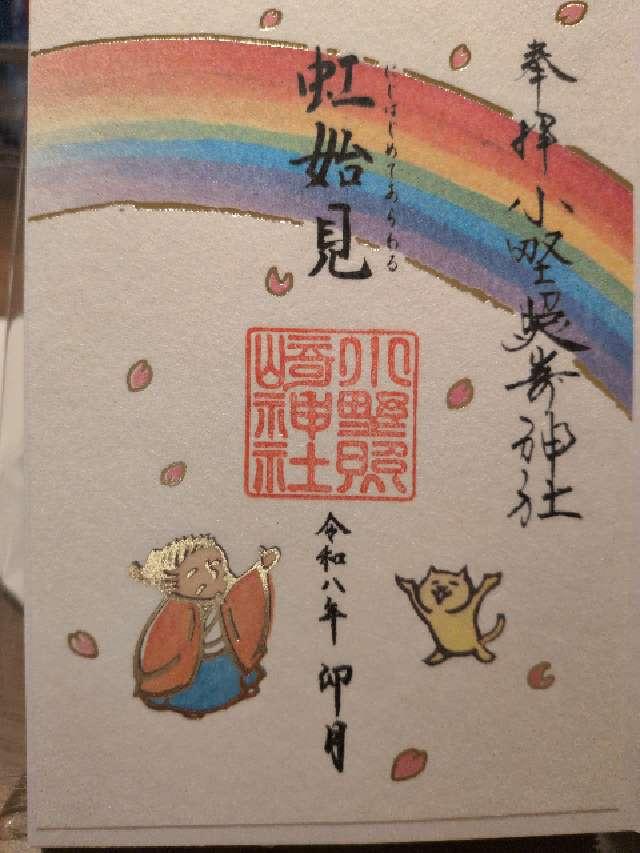 奉拝 小野照崎神社
にじはじめてあらわる
虹始見
小野照
崎神社
令和八年 卯月